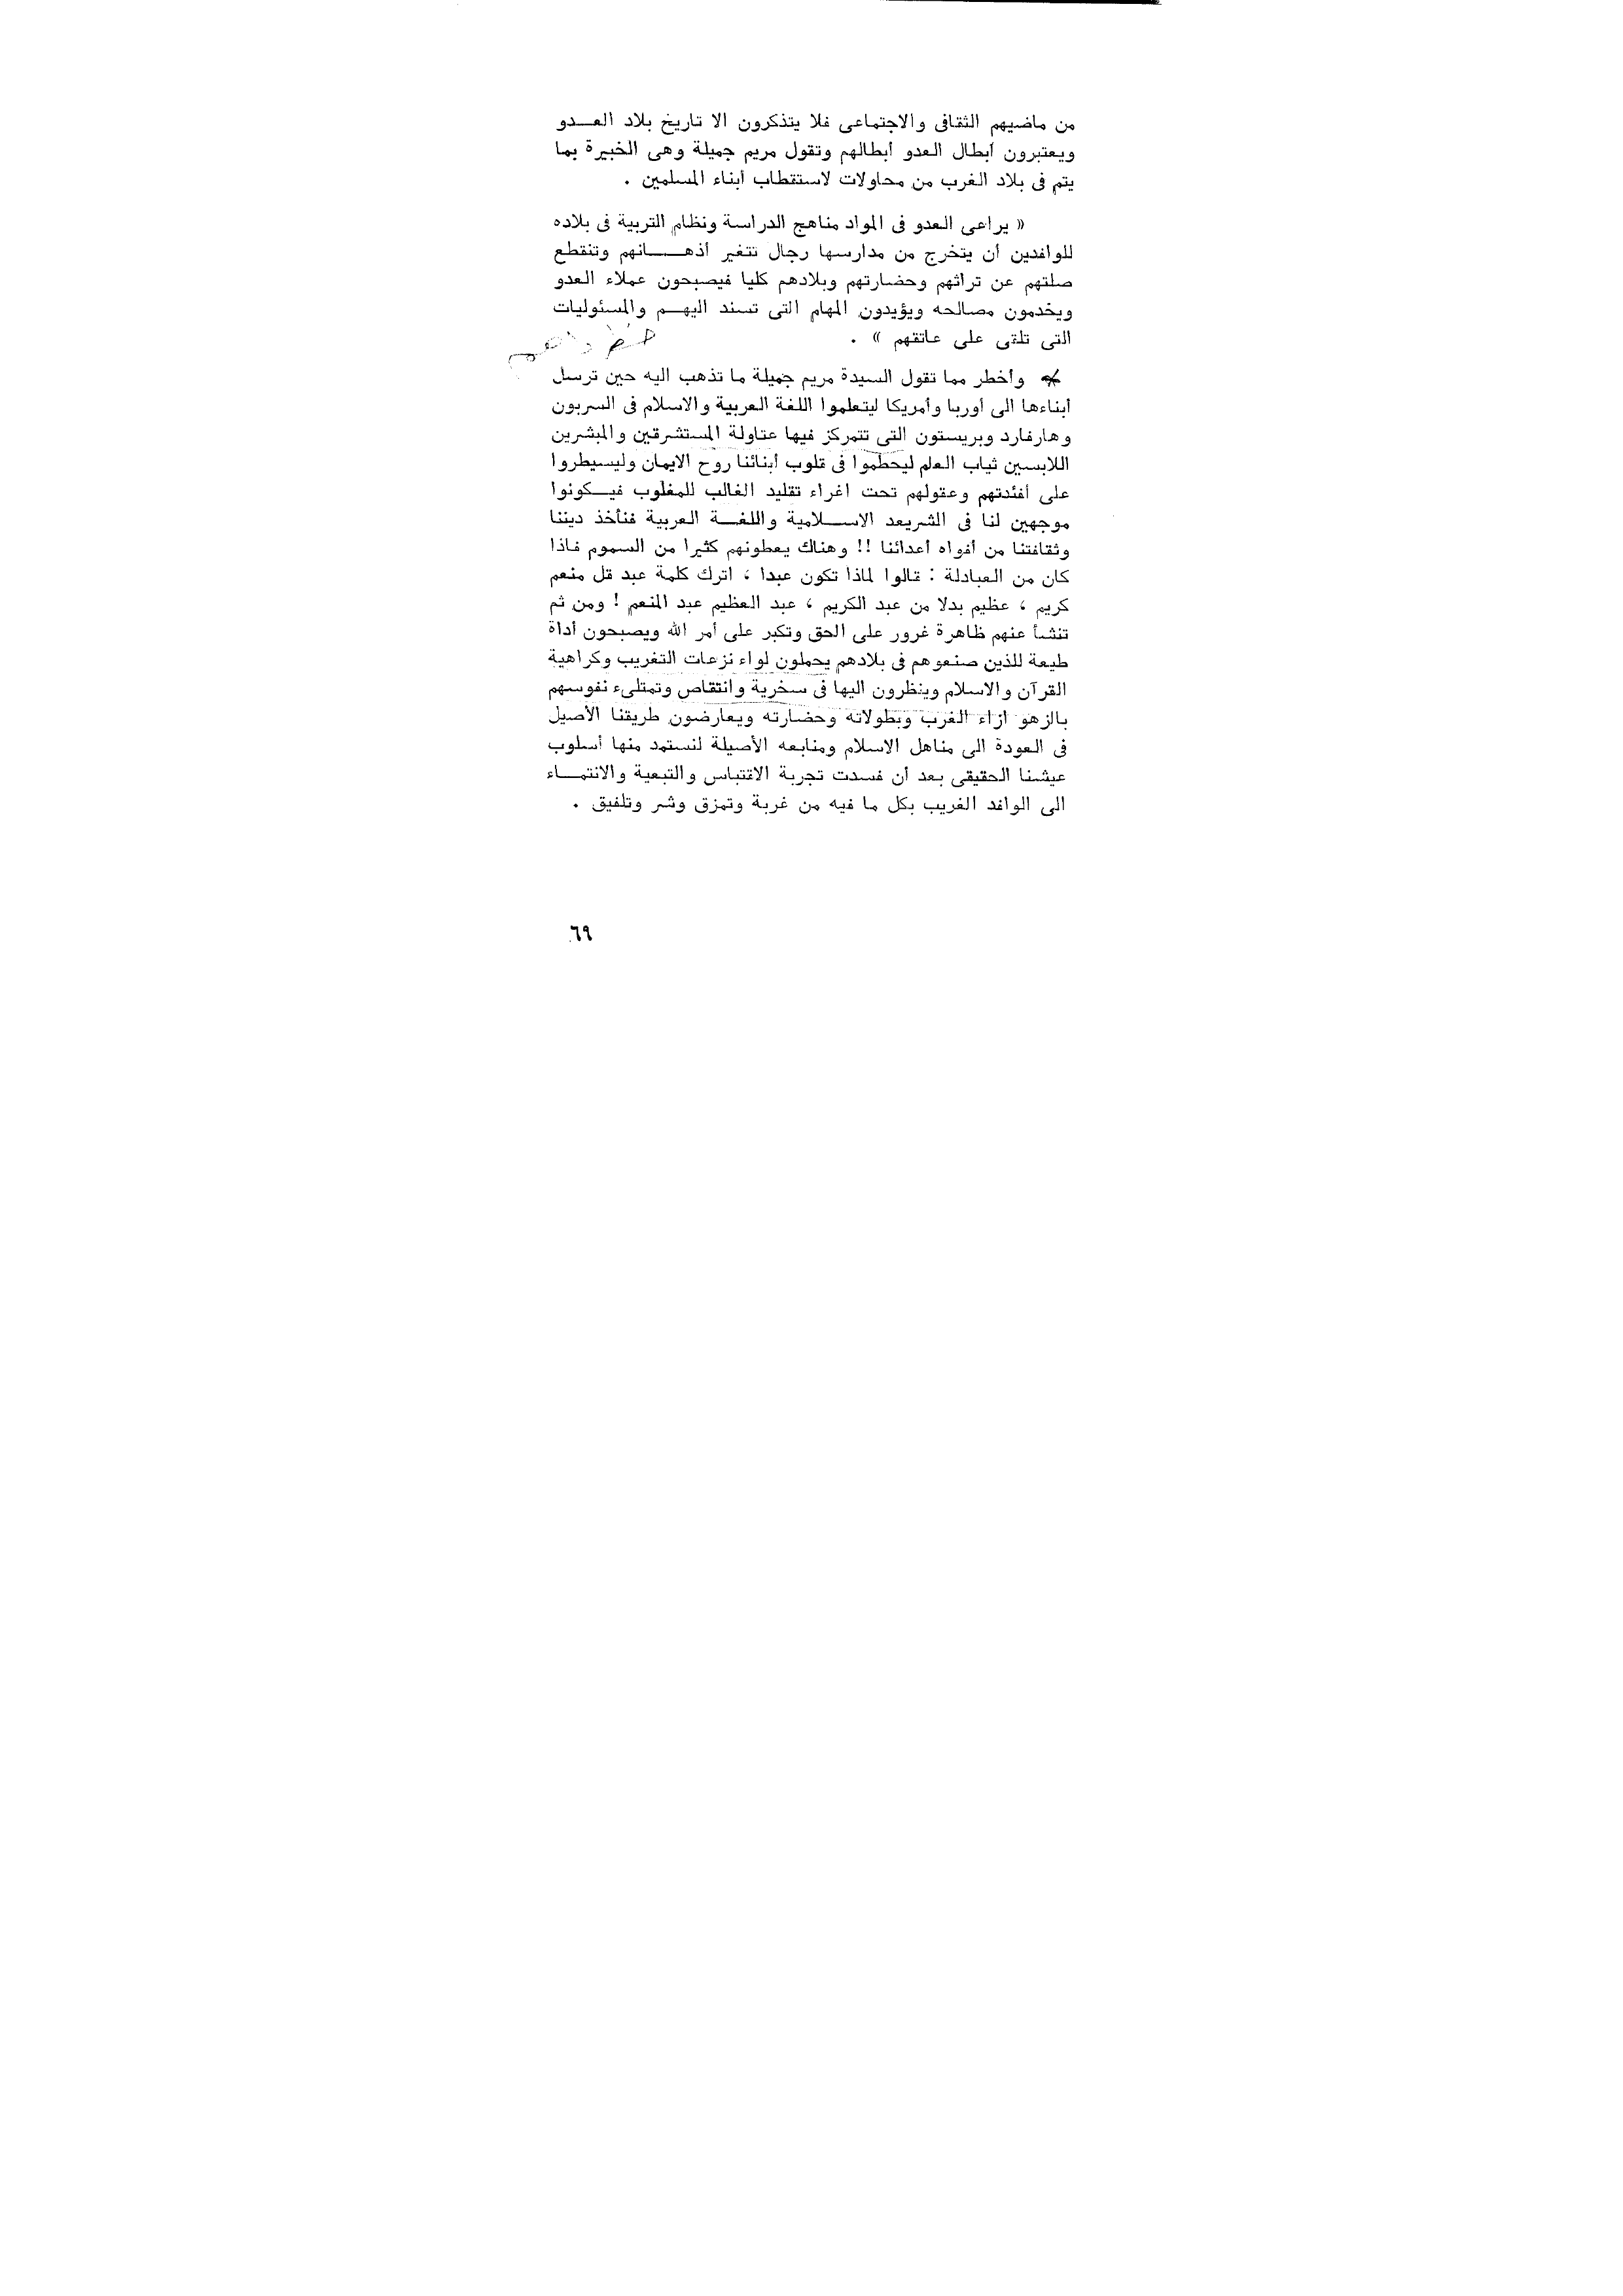 من ماضيهم الثقافى والاجتماعى فلا يتذكرون الا تاريخ بلاد العـــدو
ويعتبرون أبطال العدو أبطالهم وتقول مريم جميلة وهى الخبيرة بما
يتم فى بلاد الغرب من محاولات لاستقطاب أبناء المسلمين .
« يراعى العدو فى المواد مناهج الدراسة ونظام التربية فى بلاده
للوافدين أن يتخرج من مدارسها رجال تتغير أذهـــــانهم وتنقطع
صلتهم عن تراثهم وحضارتهم وبلادهم كليا فيصبحون عملاء العدو
ويخدمون مصالحه ويؤيدون المهام التى تسند اليهـــم والمسئوليات
التى تلقى على عاتقهم » .
وأخطر مما تقول السيدة مريم جميلة ما تذهب اليه حين ترسل
أبناءها الى أوربا وأمريكا ليتعلموا اللغة العربية والاسلام فى السربون
وهارفارد وبريستون التى تتمركز فيها عتاولة المستشرقين والمبشرين
اللابسين ثياب العلم ليحطموا فى قلوب أبنائنا روح الايمان وليسيطروا
على أفئدتهم وعقولهم تحت اغراء تقليد الغالب للمغلوب فيـــكونوا
موجهين لنا فى الشريعد الاســـلامية واللغـــة العربية فنأخذ ديننا
وثقافتنا من أفواه أعدائنا !! وهناك يعطونهم كثيرا من السموم فاذا
كان من العبادلة : قالوا لماذا تكون عبدا ، اترك كلمة عبد قل منعم
كريم ، عظيم بدلا من عبد الكريم ، عبد العظيم عبد المنعم ! ومن ثم
تنشأ عنهم ظاهرة غرور على الحق وتكبر على أمر الله ويصبحون أداة
طيعة للذين صنعوهم فى بلادهم يحملون لواء نزعات التغريب وكراهية
القرآن والاسلام وينظرون اليها فى سخرية وانتقاص وتمتلىء نفوسهم
بالزهو ازاء الغرب وبطولاته وحضارته ويعارضون طريقنا الأصيل
فى العودة الى مناهل الاسلام ومنابعه الأصيلة لنستمد منها أسلوب
عيشنا الحقيقى بعد أن فسدت تجربة الاقتباس والتبعية والانتمـــاء
الى الوافد الغريب بكل ما فيه من غربة وتمزق وشر وتلفيق .
٦٩